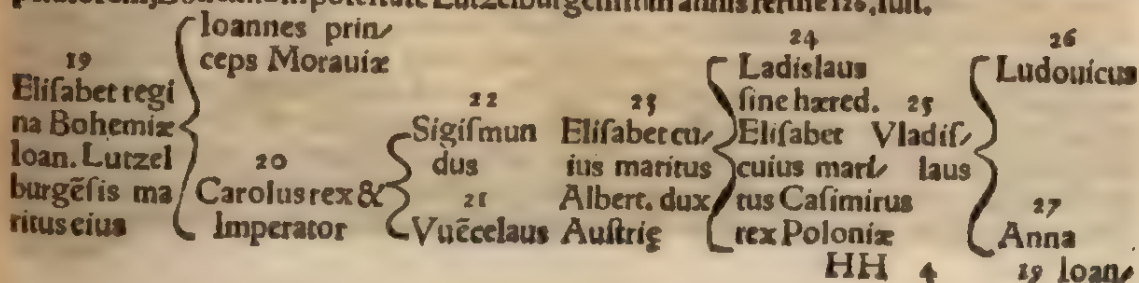 in poteſtate Lutzelburgenſium annis ferme 126, fuit.
19
Eliſabet regi
na Bohemiæ
Ioan. Lutzel
burgēſis ma
ritus eius
Ioannes prin/
ceps Morauiæ
20
Carolus rex &
Imperator
22
Sigiſmun
dus
21
Vuēceſlaus
23
Eliſabet cu/
ius maritus
Albert. dux
Auſtrię
24
Ladiſlaus
ſine hæred.
Eliſabet
cuius mari/
tus Caſimirus
rex Poloniæ
25
Vladiſ/
laus
26
Ludouicus
27
Anna
HH 4
19 Ioan/